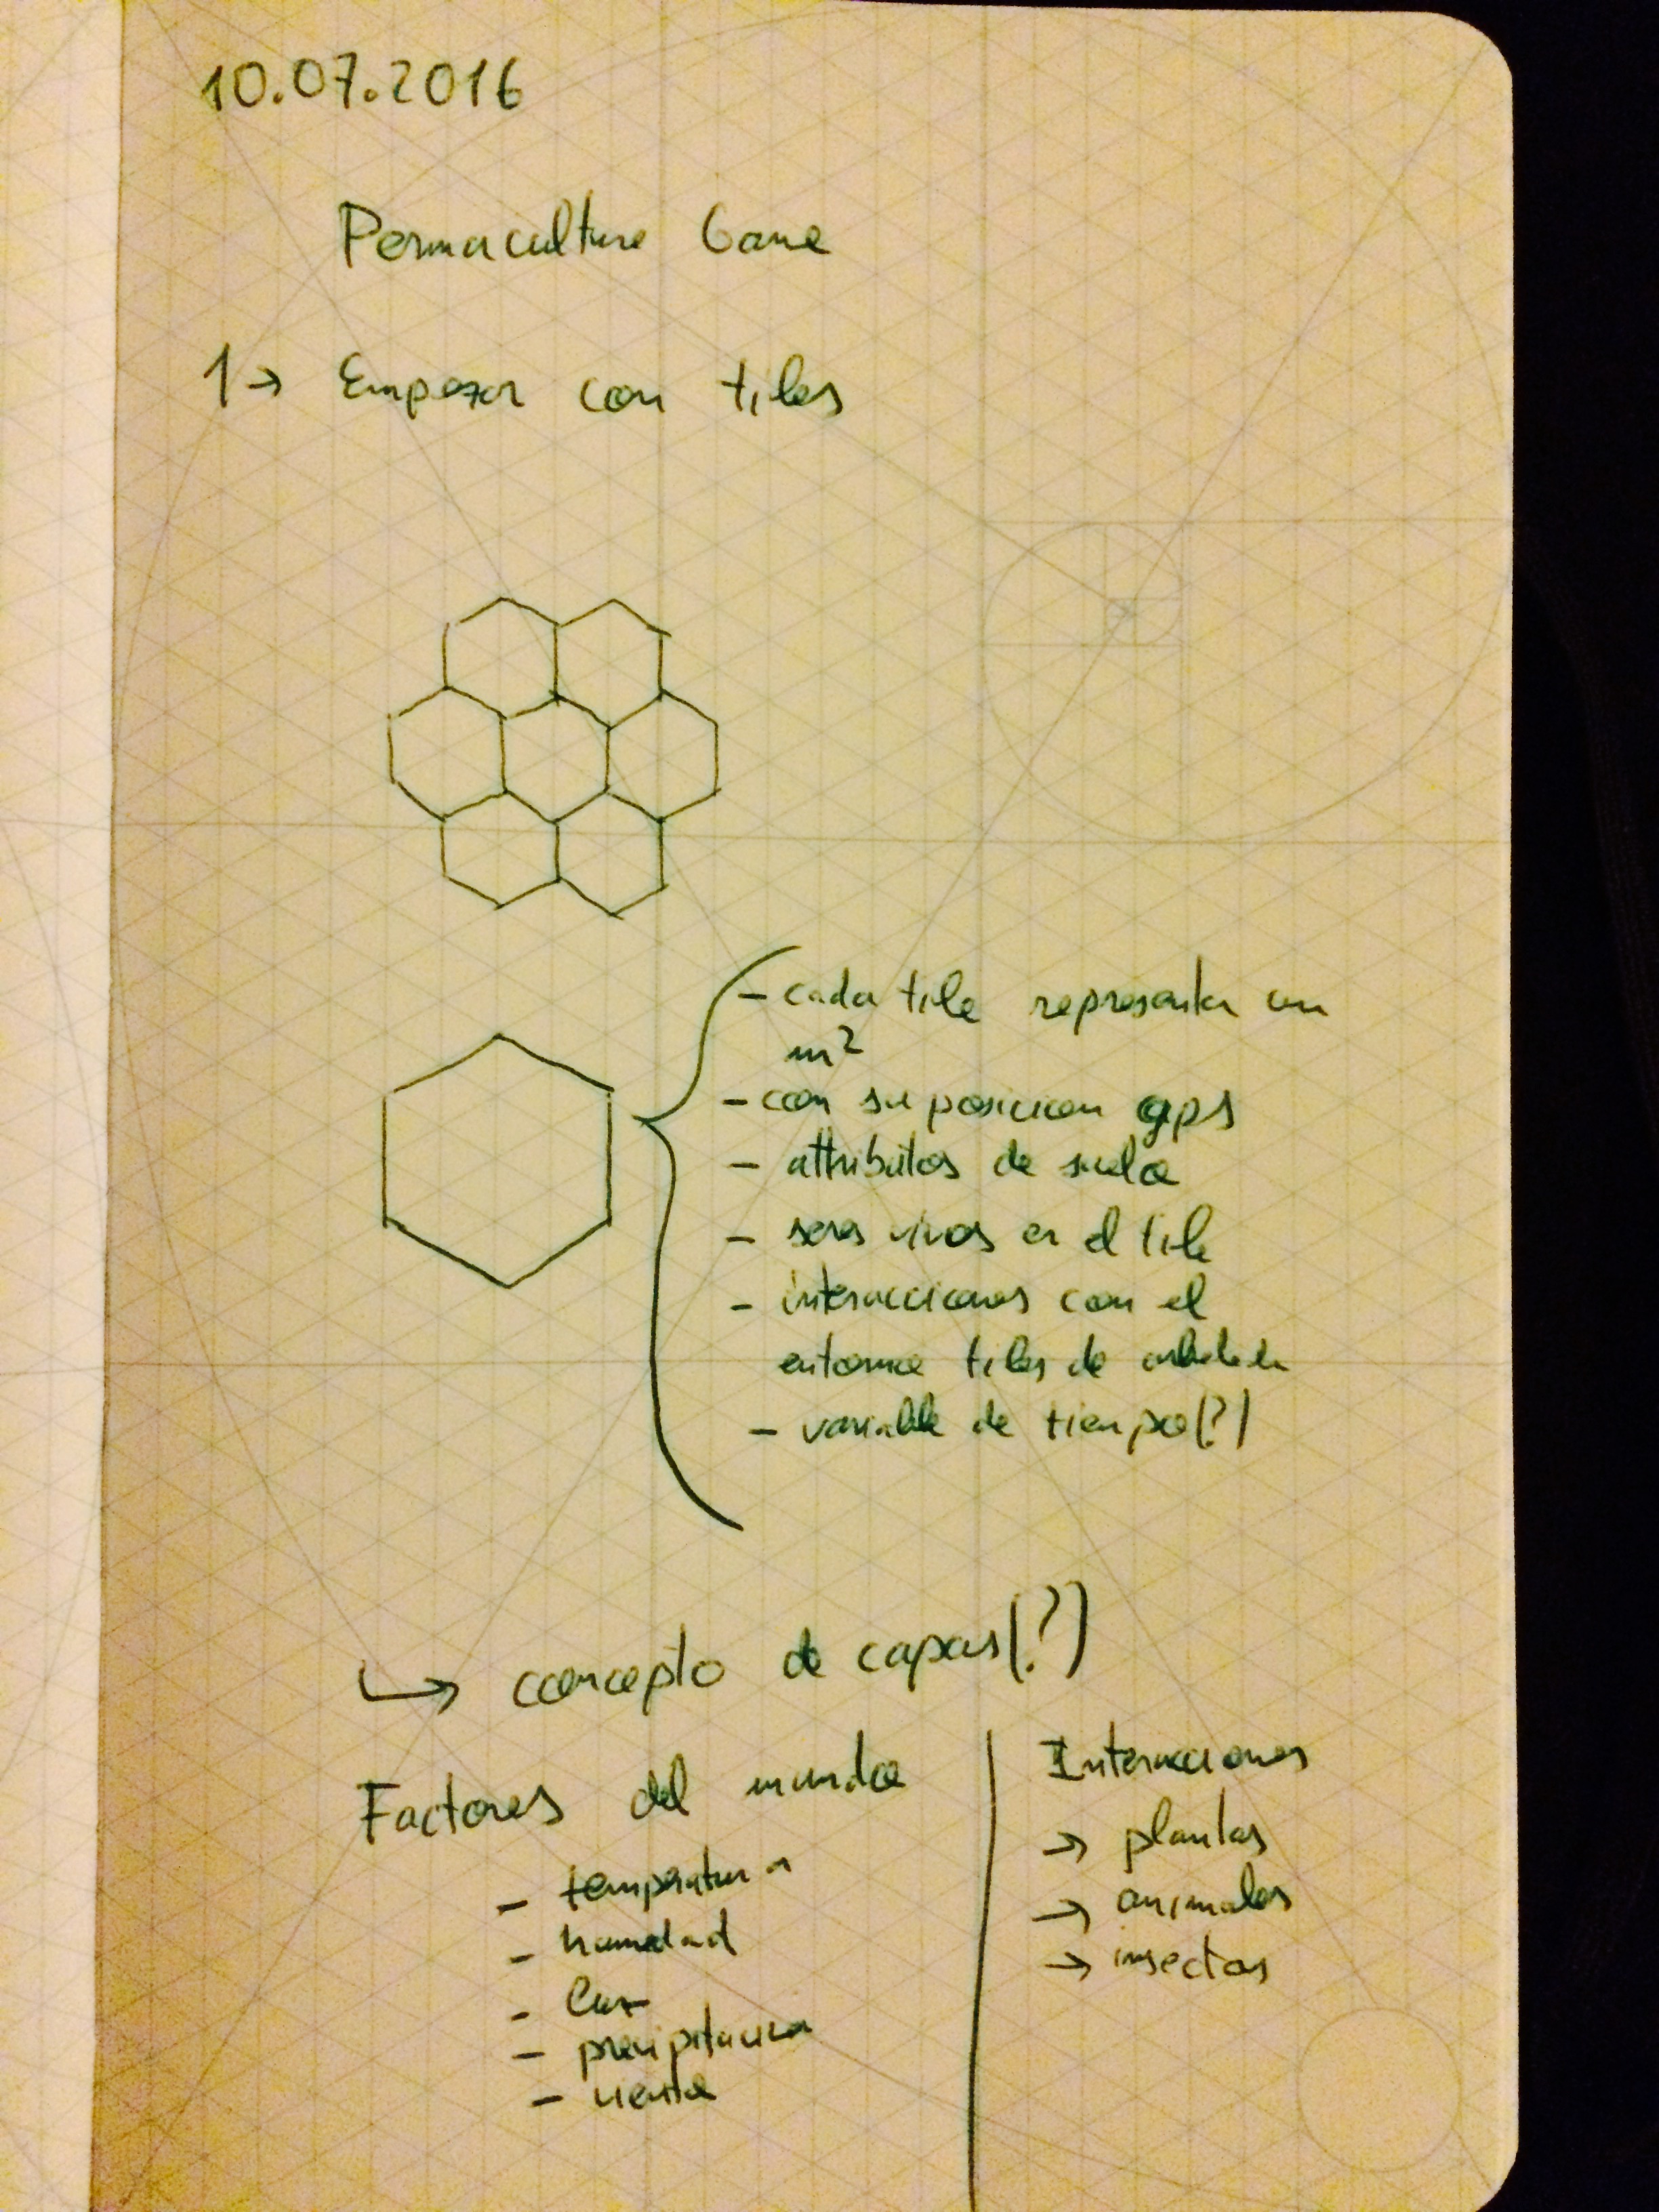 10.07.2016
Permaculture Game
1→ Empezar con tiles
- cada tile representa un
m²
- con su posicion gps
- attributos de suelo
- seres vivos en el tile
- interacciones con el
entorno tiles de
- variable de tiempo(?)
↳ concepto de capas(?)
Factores del mundo
- temperatura
- humedad
- luz
- precipitacion
- viento
Interacciones
→ plantas
→ animales
→ insectos